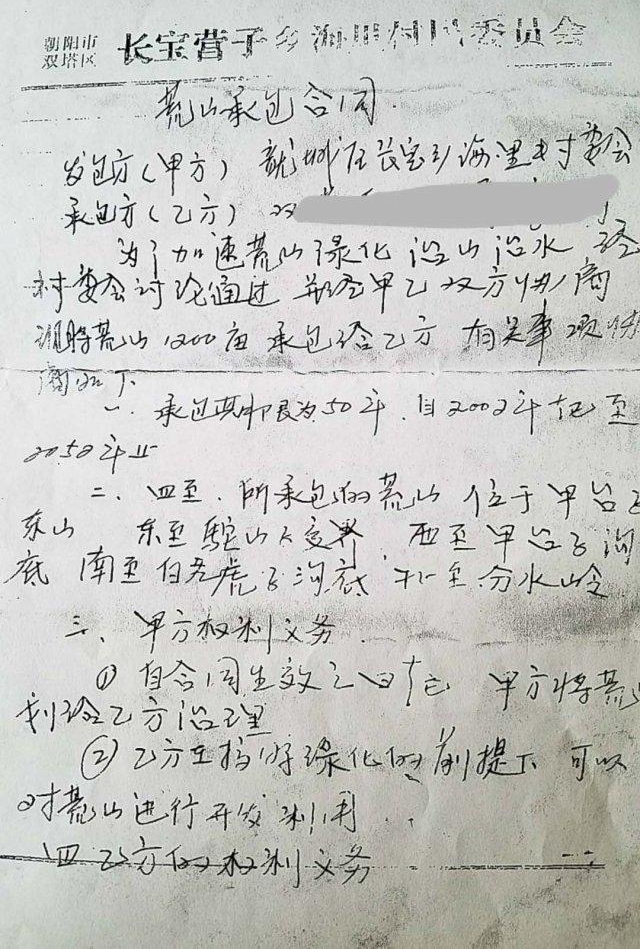 朝阳市
双塔区
长宝营子乡海里村民委员会
荒山承包合同
发包方(甲方) 龙城区长宝乡海里村委会
承包方(乙方) 双
为了加速荒山绿化 治山治水 经
村委会讨论通过 并经甲乙双方协商
现将荒山1200亩 承包给乙方 有关事项协
商如下
一、承包期限为50年,自2002年起至
2052年止
二、四至,所承包的荒山 位于甲台子
东山 东至 山下交界,西至甲台子沟
底 南至白 虎子沟底 北至分水岭
三、甲方权利义务
① 自合同生效之日起 甲方将荒山
划给乙方治理
② 乙方在搞好绿化的前提下 可以
对荒山进行开发利用.
四 乙方的权利义务